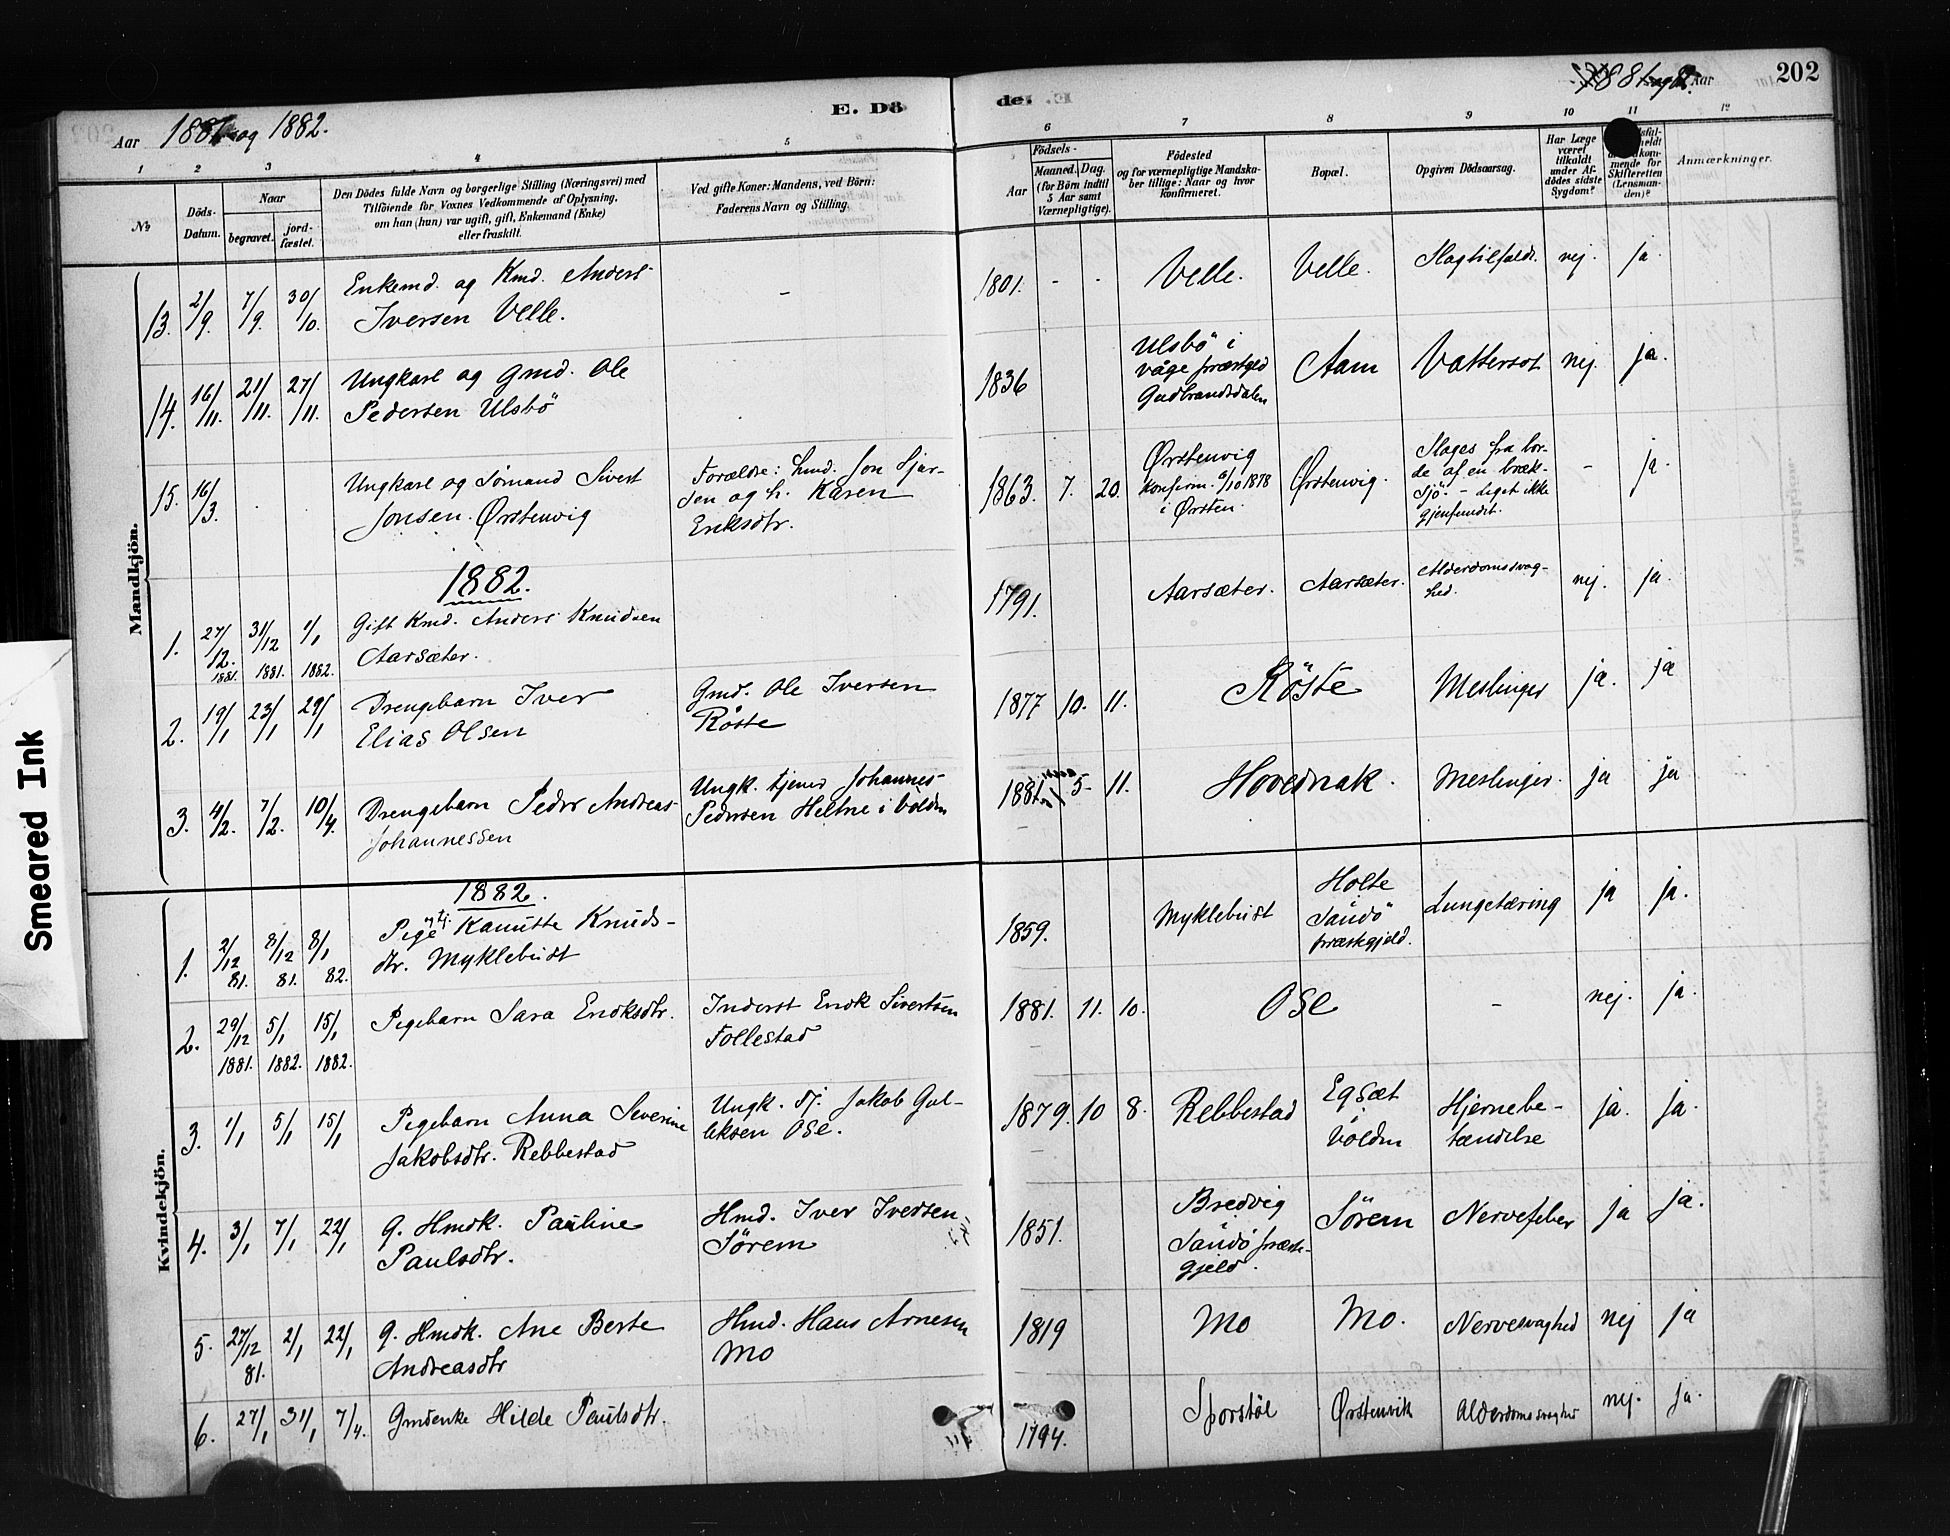 Aar 1881 og 1882.
E. Dö
de.
1881 og 82. Aar
202
1 2 3 4 5 6 7 8 9 10 11 12
№
Döds-
Datum.
Naar
begravet.
jord-
fæstet.
Den Dödes fulde Navn og borgerlige Stilling (Næringsvei) med
Tilföiende for Voxnes Vedkommende af Oplysning,
om han (hun) var ugift, gift, Enkemand (Enke)
eller fraskilt.
Ved gifte Koner: Mandens, ved Börn:
Faderens Navn og Stilling.
Födsels-
Aar
Maaned. Dag.
(for Börn indtil
5 Aar samt
Værnepligtige).
Födested
og for værnepligtige Mandska-
ber tillige: Naar og hvor
konfirmeret.
Bopæl.
Opgiven Dödsaarsag.
Har Læge
været
tilkaldt
under Af-
dödes sidste
Sygdom?
mende for
Skifteretten
(Lensman-
den)?
Anmærkninger.
Mandkjön.
13. 2/9. 7/9. 30/10. Enkemd. og Kmd. Anders
Iversen Velle.
- 1801. - - Velle. Velle. Slagtilfælde. nej. ja.
14. 16/11. 21/11. 27/11. Ungkarl og Gmd. Ole
Pedersen Ulsbö
1836 Ulsbö i
våge præstgld
Gudbrandsdalen
Aam Vattersot nej. ja.
15. 16/3. Ungkarl og Sömand Sivert
Jonsen Ørstenvig
Forældre: Jon Sjur-
sen og h. Karen
Eriksdtr.
1863. 7. 20. Ørstenvig
Konfirm. 6/10 1878
i Ørsten.
Ørstenvig. Slages fra bor-
de af en bræk-
sjö. - Liget ikke
gjenfundet.
- ja.
1882.
1. 27/12. 1881. 31/12 1881. 1/1 1882. Gift Kmd. Anders Knudsen
Aarsæter.
1791. Aarsæter. Aarsæter. Alderdomssvag-
hed.
nej. ja.
2. 19/1 23/1 29/1 Drengebarn Iver
Elias Olsen
Gmd. Ole Iversen
Röste
1877 10. 11. Röste Meslinger ja. ja
3. 4/2. 7/2. 10/4. Drengebarn Peder Andreas
Johannessen
Ungk. tjener Johannes
Pedersen Heltne i Volden
1881. 5. 11. Hovednak. Meslinger. ja ja
Kvindekjön.
1882.
1. 2/12 81. 8/12 81. 8/1 82. Pige Kanutte Knuds-
dtr. Myklebust
1859. Myklebust Holte
Sandö
præstgjeld.
Lungetæring ja ja.
2. 29/12 1881. 5/1 1882. 15/1 1882. Pigebarn Sara Eriksdtr.
Inderst Erik Sivertsen
Follestad
1881. 11. 10. Ose - nej. ja.
3. 1/1 5/1 15/1 Pigebarn Anna Severine
Jakobsdtr. Rebbestad
Ungk. tj. Jakob Gul-
leksen Ose.
1879. 10 8. Rebbestad Egsæt
i
Volden
Hjernebe-
tændelse
ja. ja.
4. 3/1 7/1 22/1 G. Hmdk. Pauline
Paulsdtr.
Hmd. Iver Iversen
Sörem
1851. Bredvig
Sandö præste-
gjeld.
Sörem Nervefeber ja ja.
5. 27/12 81. 2/1 22/1 G. Hmdk. Ane Berte
Andreasdtr
Hmd. Hans Arnesen
Mo
1819 Mo Mo. Nervesvaghed nej ja
6. 27/1 31/1 7/4. Gmdenke Hilde Paulsdtr.
1794. Sporstöl Ørstenvik Alderdomssvaghed nej. ja.
Smeared Ink